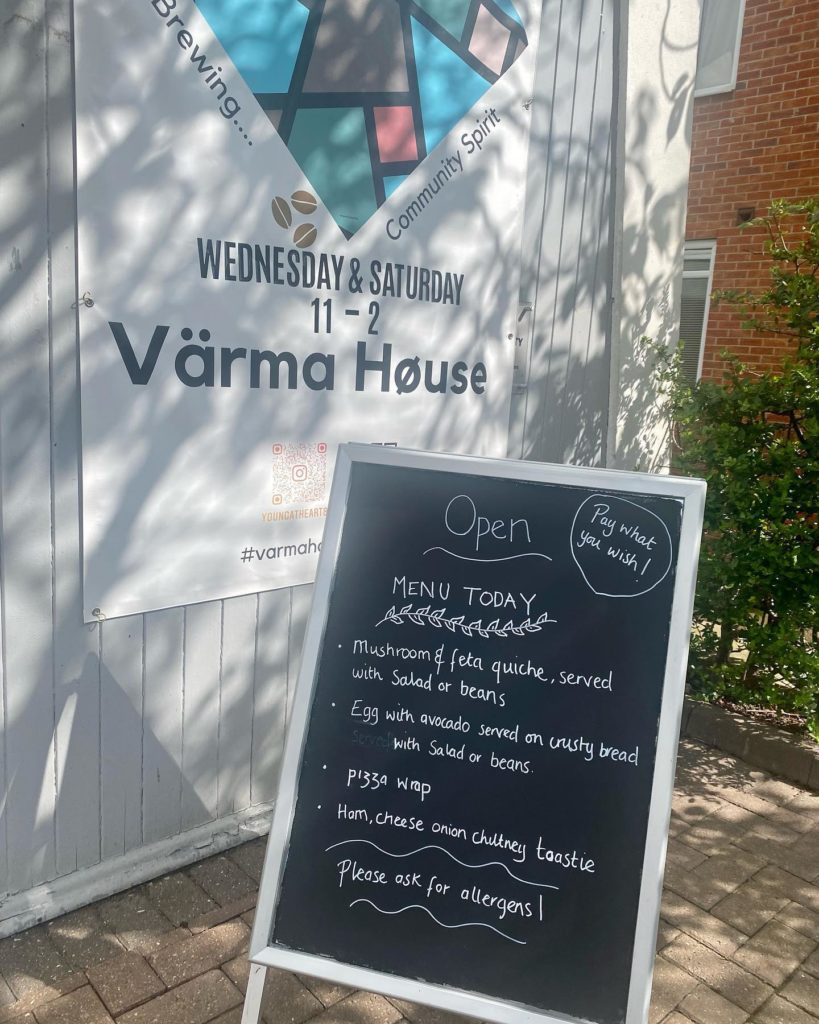 Brewing....
Community Spirit
WEDNESDAY & SATURDAY
11 - 2
Värma Høuse
#varmah
Open
Pay what
you wish!
MENU TODAY
• Mushroom & feta quiche, served
with Salad or beans
• Egg with avocado served on crusty bread
served with Salad or beans.
• pizza wrap
• Ham, cheese onion chutney toastie
Please ask for allergens!